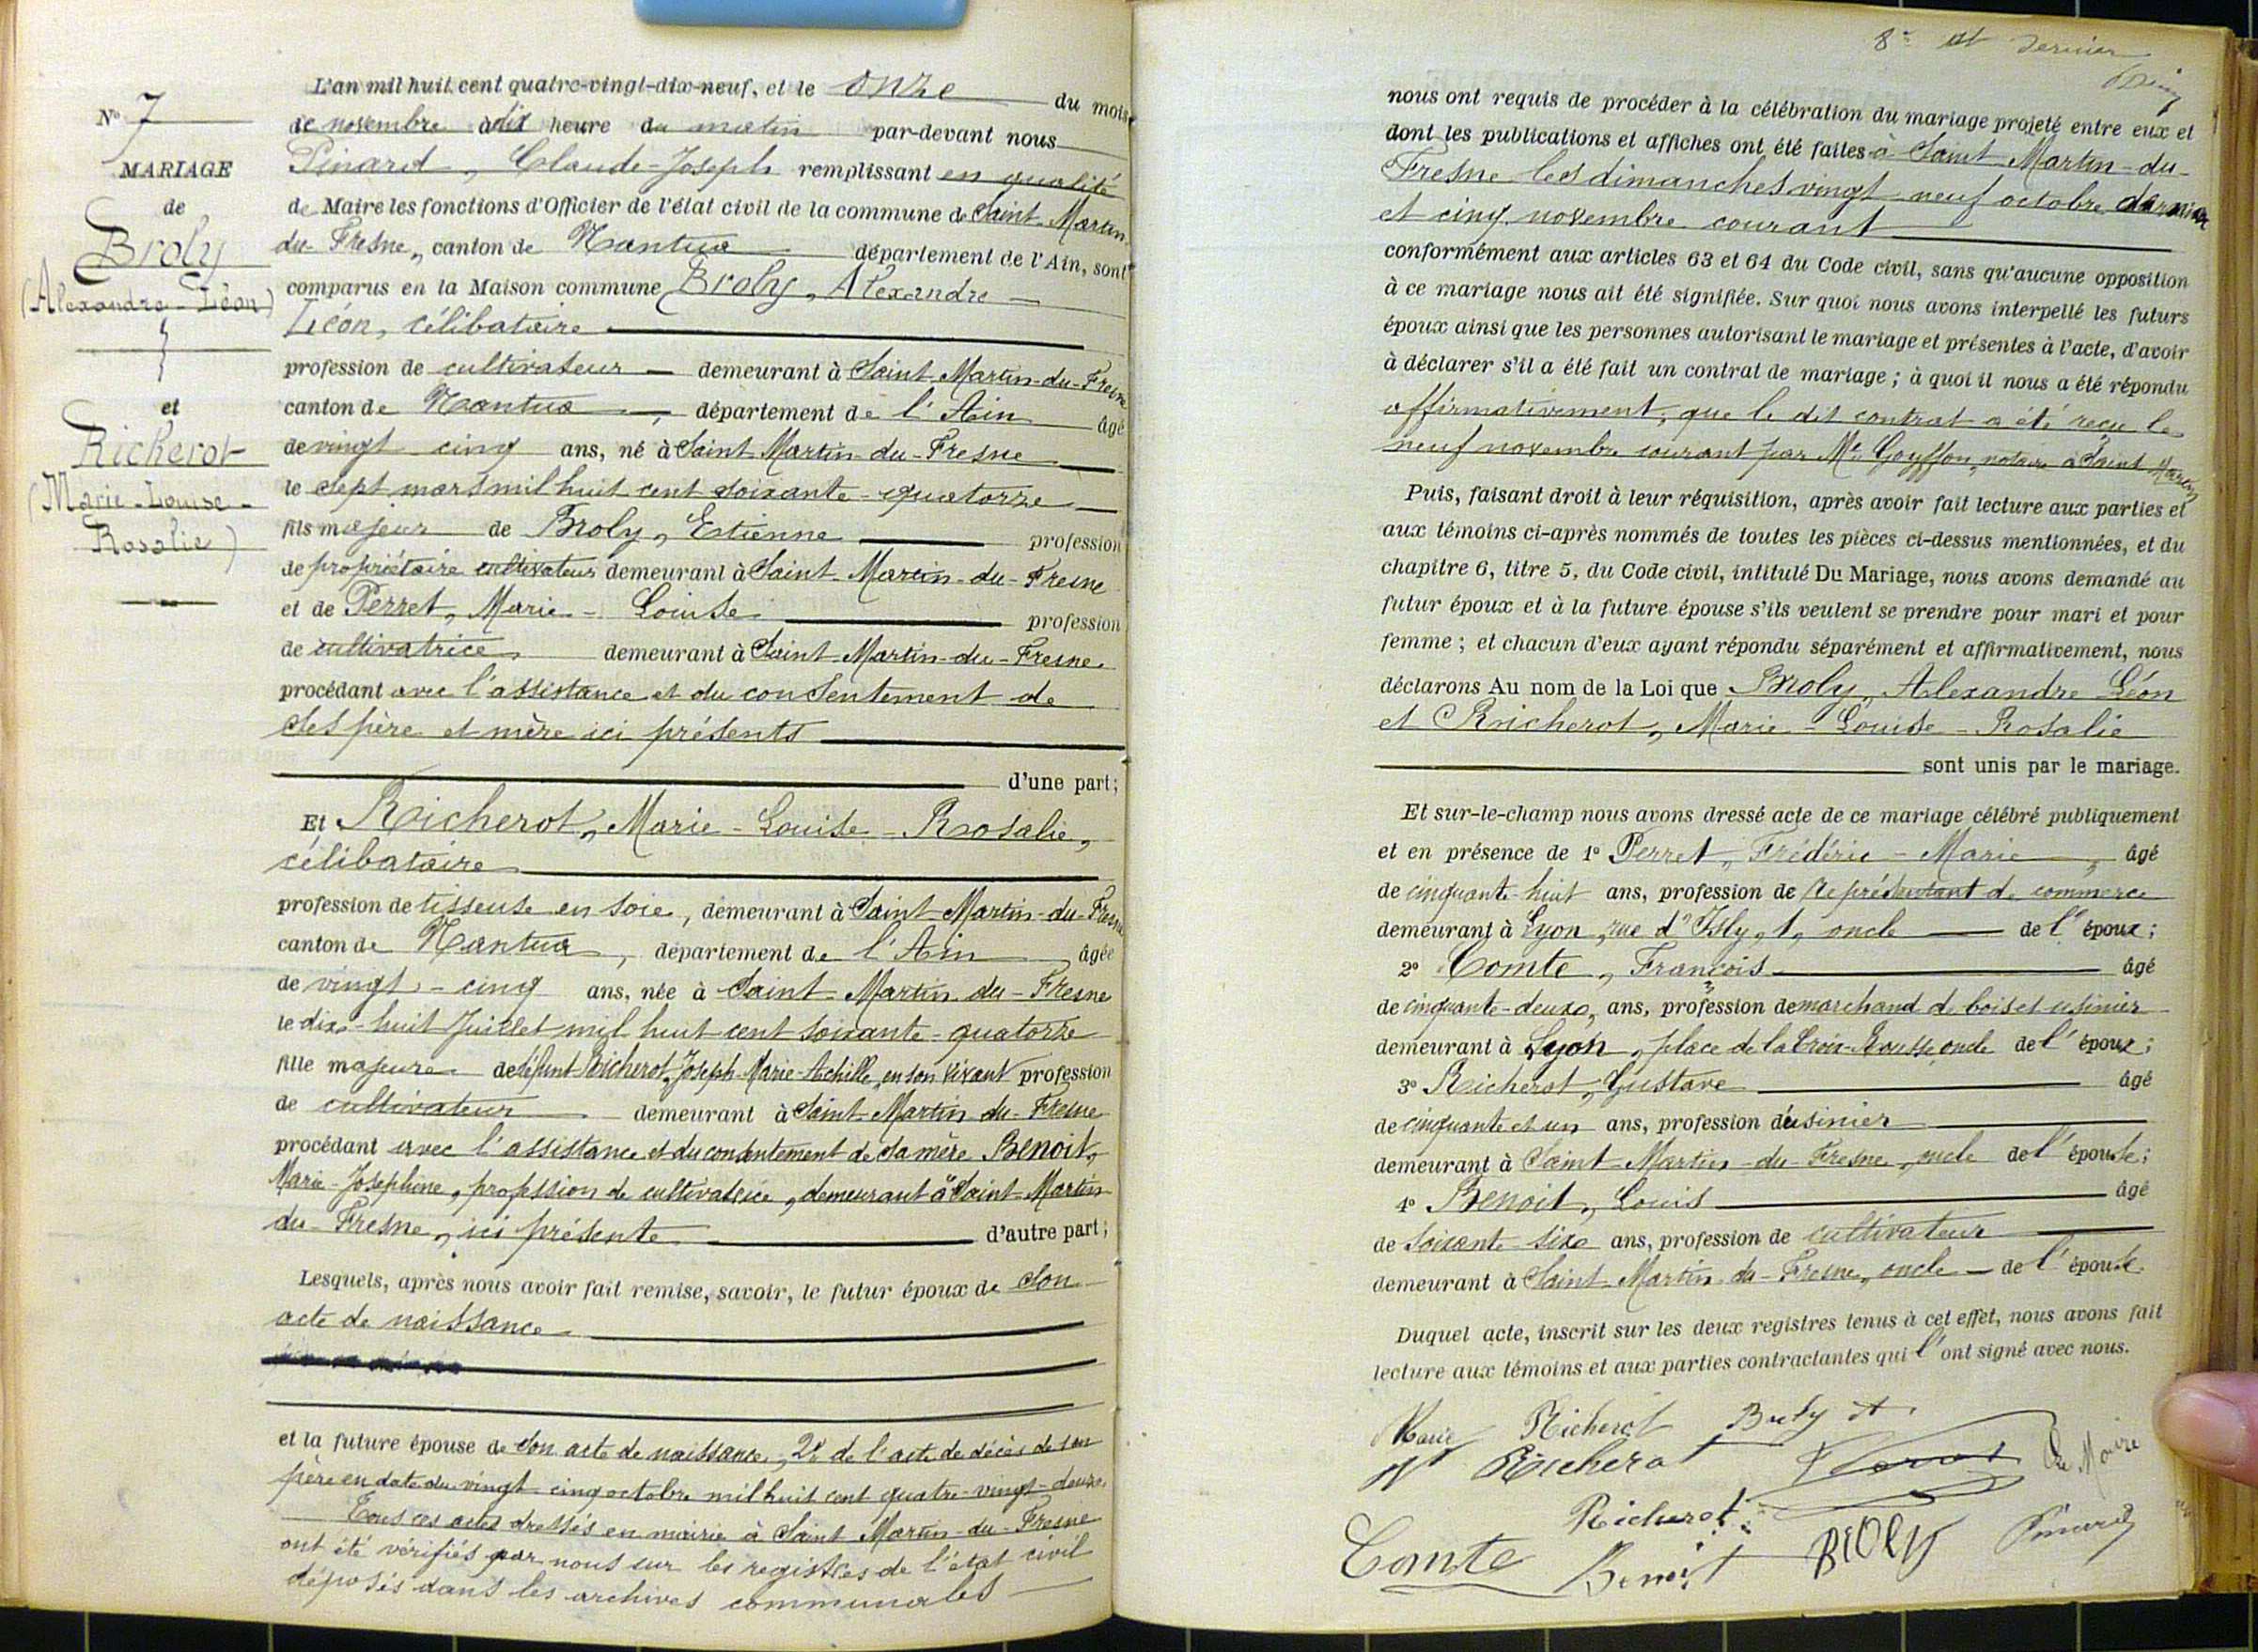 N° 7
MARIAGE
de
Broly
(Alexandre-Léon)
et
Richerot
(Marie-Louise-
Rosalie)
L'an mil huit cent quatre-vingt-dix-neuf, et le onze du mois
de novembre à dix heure du matin par-devant nous
Pinard, Claude-Joseph remplissant en qualité
de Maire les fonctions d'Officier de l'état civil de la commune de Saint-Martin-
du-Fresne, canton de Nantua département de l'Ain, sont
comparus en la Maison commune Broly, Alexandre
Léon, célibataire
profession de cultivateur demeurant à Saint-Martin-du-Fresne
canton de Nantua, département de l'Ain âgé
de vingt cinq ans, né à Saint-Martin-du-Fresne
le sept mars mil huit cent soixante-quatorze
fils majeur de Broly, Etienne profession
de propriétaire cultivateur demeurant à Saint-Martin-du-Fresne
et de Perret, Marie-Louise profession
de cultivatrice, demeurant à Saint-Martin-du-Fresne.
procédant avec l'assistance et du consentement de
ses père et mère ici présents
d'une part;
Et Richerot, Marie-Louise-Rosalie,
célibataire
profession de tisseuse en soie, demeurant à Saint-Martin-du-Fresne
canton de Nantua, département de l'Ain âgée
de vingt-cinq ans, née à Saint-Martin du-Fresne
le dix-huit Juillet mil huit cent soixante-quatorze
fille majeure de défunt Richerot, Joseph-Marie-Achille, en son vivant profession
de cultivateur demeurant à Saint-Martin du-Fresne
procédant avec l'assistance et du consentement de sa mère Benoit,
Marie-Joséphine, profession de cultivatrice, demeurant à Saint-Martin
du-Fresne, ici présente d'autre part;
Lesquels, après nous avoir fait remise, savoir, le futur époux de son
acte de naissance
et la future épouse de son acte de naissance, 2° de l'acte de décès de son
père en date du vingt cinq octobre mil huit cent quatre-vingt-deux.
Tous ces actes dressés en mairie à Saint-Martin-du-Fresne
ont été vérifiés par nous sur les registres de l'état civil
déposés dans les archives communales
8e et dernier
nous ont requis de procéder à la célébration du mariage projeté entre eux et
dont les publications et affiches ont été faites à Saint-Martin-du-
Fresne les dimanches vingt neuf octobre dernier
et cinq novembre courant
conformément aux articles 63 et 64 du Code civil, sans qu'aucune opposition
à ce mariage nous ait été signifiée. Sur quoi nous avons interpellé les futurs
époux ainsi que les personnes autorisant le mariage et présentes à l'acte, d'avoir
à déclarer s'il a été fait un contrat de mariage; à quoi il nous a été répondu
affirmativement, que le dit contrat a été reçu le
neuf novembre courant par Me Goyffon, notaire à Saint Martin
Puis, faisant droit à leur réquisition, après avoir fait lecture aux parties et
aux témoins ci-après nommés de toutes les pièces ci-dessus mentionnées, et du
chapitre 6, titre 5, du Code civil, intitulé Du Mariage, nous avons demandé au
futur époux et à la future épouse s'ils veulent se prendre pour mari et pour
femme; et chacun d'eux ayant répondu séparément et affirmativement, nous
déclarons Au nom de la Loi que Broly, Alexandre Léon
et Richerot, Marie-Louise-Rosalie
sont unis par le mariage.
Et sur-le-champ nous avons dressé acte de ce mariage célébré publiquement
et en présence de 1° Perret, Frédéric-Marie, âgé
de cinquante-huit ans, profession de Représentant de commerce
demeurant à Lyon, rue d'Isly, 1, oncle de l'époux;
2° Comte, François âgé
de cinquante-deux, ans, profession de marchand de bois et usinier
demeurant à Lyon, place de la Croix-Rousse oncle de l'époux;
3° Richerot, Gustave âgé
de cinquante et un ans, profession d'usinier
demeurant à Saint-Martin-du-Fresne, oncle de l'épouse;
4° Benoit, Louis âgé
de soixante-six ans, profession de cultivateur
demeurant à Saint-Martin du-Fresne, oncle de l'épouse.
Duquel acte, inscrit sur les deux registres tenus à cet effet, nous avons fait
lecture aux témoins et aux parties contractantes qui l'ont signé avec nous.
Marie Richerot Broly A.
Richerot Le Maire
Richerot
Comte Benoit Broly Pinard